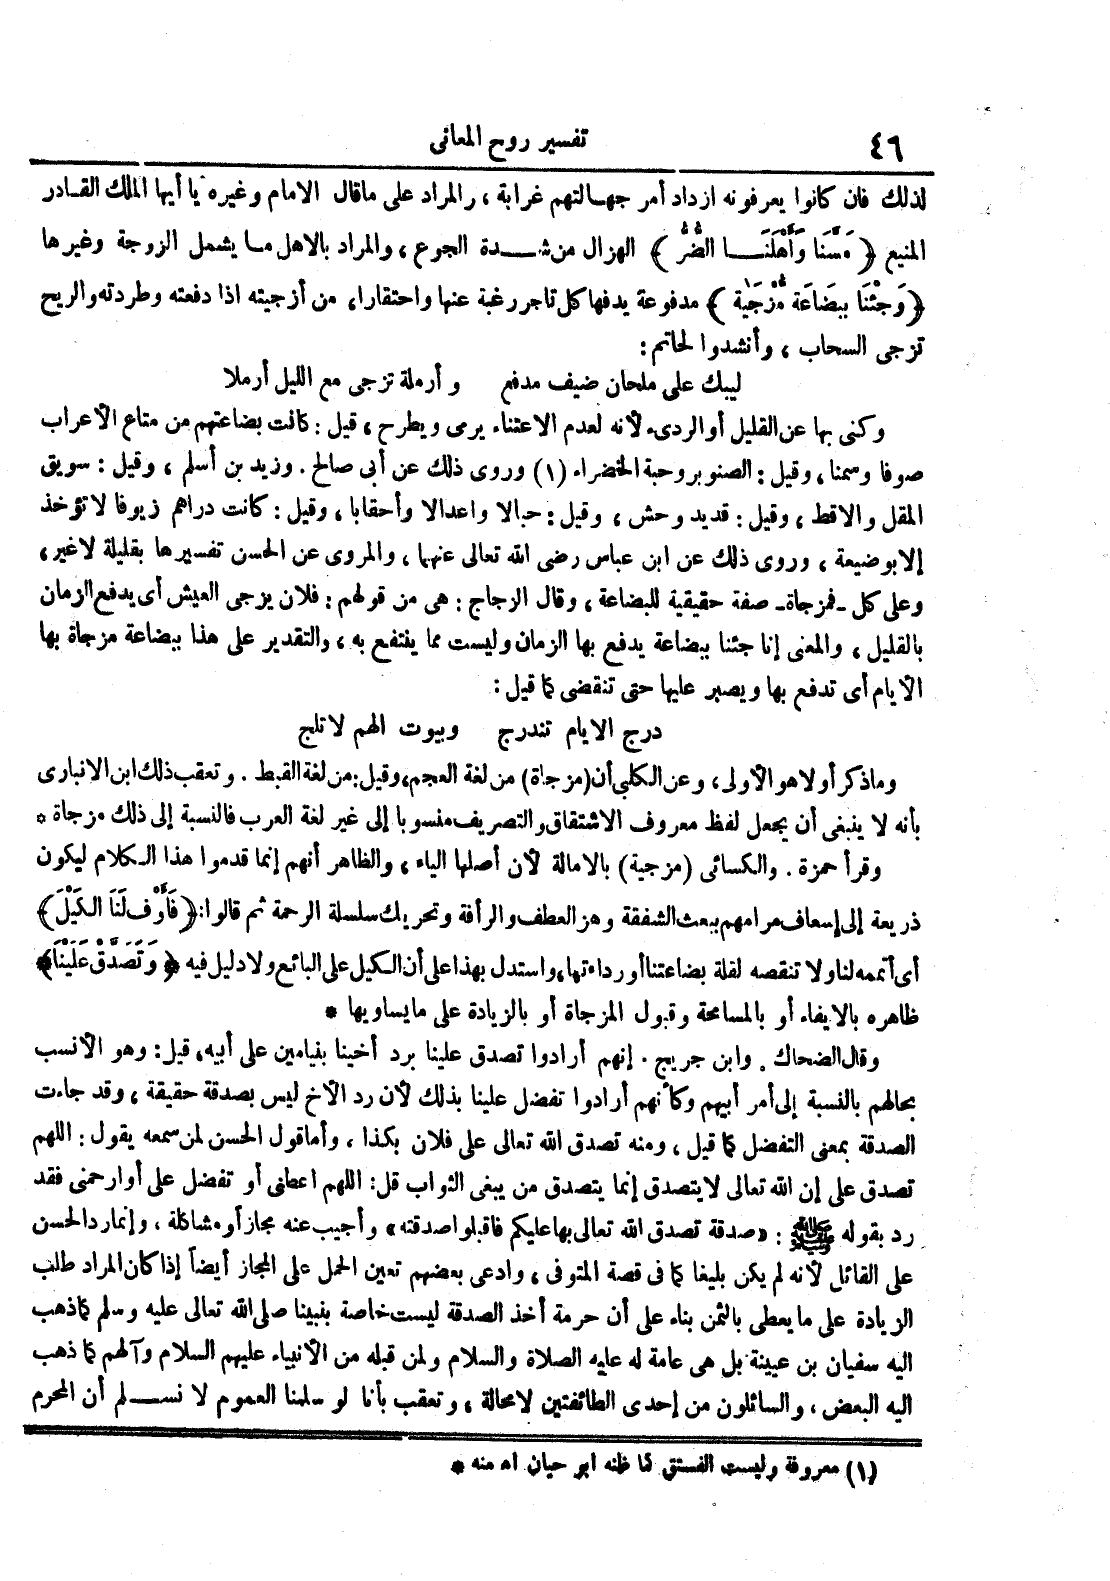 ٤٦
تفسير روح المعانى
لذلك فان كانوا يعرفونه ازداد أمر جهالتهم غرابة ، والمراد على ماقال الامام وغيره يا أيها الملك القادر
المنيع ﴿ مَسَّنَا وَأَهْلَنَا الضُّرُّ ﴾ الهزال من شدة الجوع ، والمراد بالاهل ما يشمل الزوجة وغيرها
﴿ وَجِئْنَا بِبِضَاعَة مُّزْجَٰيَة ﴾ مدفوعة يدفها كل تاجر رغبة عنها واحتقارا، من أزجيته اذا دفعته وطردته والريح
تزجى السحاب ، وأنشدوا لحاتم :
ليبك على ملحان ضيف مدفع وأرملة تزجى مع الليل أرملا
وكنى بها عن القليل أو الردىء لأنه لعدم الاعتناء يرمى ويطرح ، قيل : كانت بضاعتهم من متاع الأعراب
صوفا وسمنا ، وقيل : الصنوبر وحبة الخضراء (١) وروى ذلك عن أبى صالح . وزيد بن أسلم ، وقيل : سويق
المقل والاقط ، وقيل : قديد وحش ، وقيل : حبالا واعدالا وأحقابا ، وقيل : كانت دراهم زيوفا لاتؤخذ
إلا بوضيعة ، وروى ذلك عن ابن عباس رضى الله تعالى عنهما ، والمروى عن الحسن تفسيرها بقليلة لاغير ،
وعلى كل ـ فمزجاة ـ صفة حقيقية للبضاعة ، وقال الزجاج : هى من قولهم : فلان يزجى العيش أى يدفع الزمان
بالقليل ، والمعنى إنا جئنا ببضاعة يدفع بها الزمان وليست مما ينتفع به ، والتقدير على هذا ببضاعة مزجاة بها
الأيام أى تدفع بها ويصبر عليها حتى تنقضى كما قيل :
درج الايام تندرج وبيوت الهم لاتلج
وماذكر أولا هو الأولى ، وعن الكلبى أن (مزجاة) من لغة العجم، وقيل : من لغة القبط . وتعقب ذلك ابن الانبارى
بأنه لا ينبغى أن يجعل لفظ معروف الاشتقاق والتصريف منسوبا إلى غير لغة العرب فالنسبة إلى ذلك مزجاة *
وقرأ حمزة . والكسائى (مزجية) بالامالة لأن أصلها الياء ، والظاهر أنهم إنما قدموا هذا الكلام ليكون
ذريعة إلى إسعاف مرامهم ببعث الشفقة وهز العطف والرأفة وتحريك سلسلة الرحمة ثم قالوا : ﴿ فَأَوْف لَنَا الكَيْلَ ﴾
أى أتممه لنا ولا تنقصه لقلة بضاعتنا أو رداءتها، واستدل بهذا على أن الكيل على البائع ولا دليل فيه ﴿ وَتَصَدَّقْ عَلَيْنَا ﴾
ظاهره بالايفاء أو بالمسامحة وقبول المزجاة أو بالزيادة على مايساويها *
وقال الضحاك . وابن جريج . إنهم أرادوا تصدق علينا برد أخينا بنيامين على أبيه، قيل : وهو الأنسب
بحالهم بالنسبة إلى أمر أبيهم وكأنهم أرادوا تفضل علينا بذلك لأن رد الأخ ليس بصدقة حقيقة ، وقد جاءت
الصدقة بمعنى التفضل كما قيل ، ومنه تصدق الله تعالى على فلان بكذا ، وأماقول الحسن لمن سمعه يقول : اللهم
تصدق على إن الله تعالى لا يتصدق إنما يتصدق من يبغى الثواب قل : اللهم اعطنى أو تفضل على أو ارحمنى فقد
رد بقوله ﷺ : «صدقة تصدق الله تعالى بها عليكم فاقبلوا صدقته» وأجيب عنه مجاز أو مشاكلة ، وإنما رد الحسن
على القائل لأنه لم يكن بليغا كما فى قصة المتوفى ، وادعى بعضهم تعين الحمل على المجاز أيضاً إذا كان المراد طلب
الزيادة على ما يعطى بالثمن بناء على أن حرمة أخذ الصدقة ليست خاصة بنبينا صلى الله تعالى عليه وسلم كما ذهب
اليه سفيان بن عيينة بل هى عامة له عليه الصلاة والسلام ولمن قبله من الأنبياء عليهم السلام وآلهم كما ذهب
اليه البعض ، والسائلون من إحدى الطائفتين لامحالة ، وتعقب بأنا لو سلمنا العموم لا نسلم أن المحرم
(١) معروفة وليست الفستق كما ظنه ابو حيان اه منه *